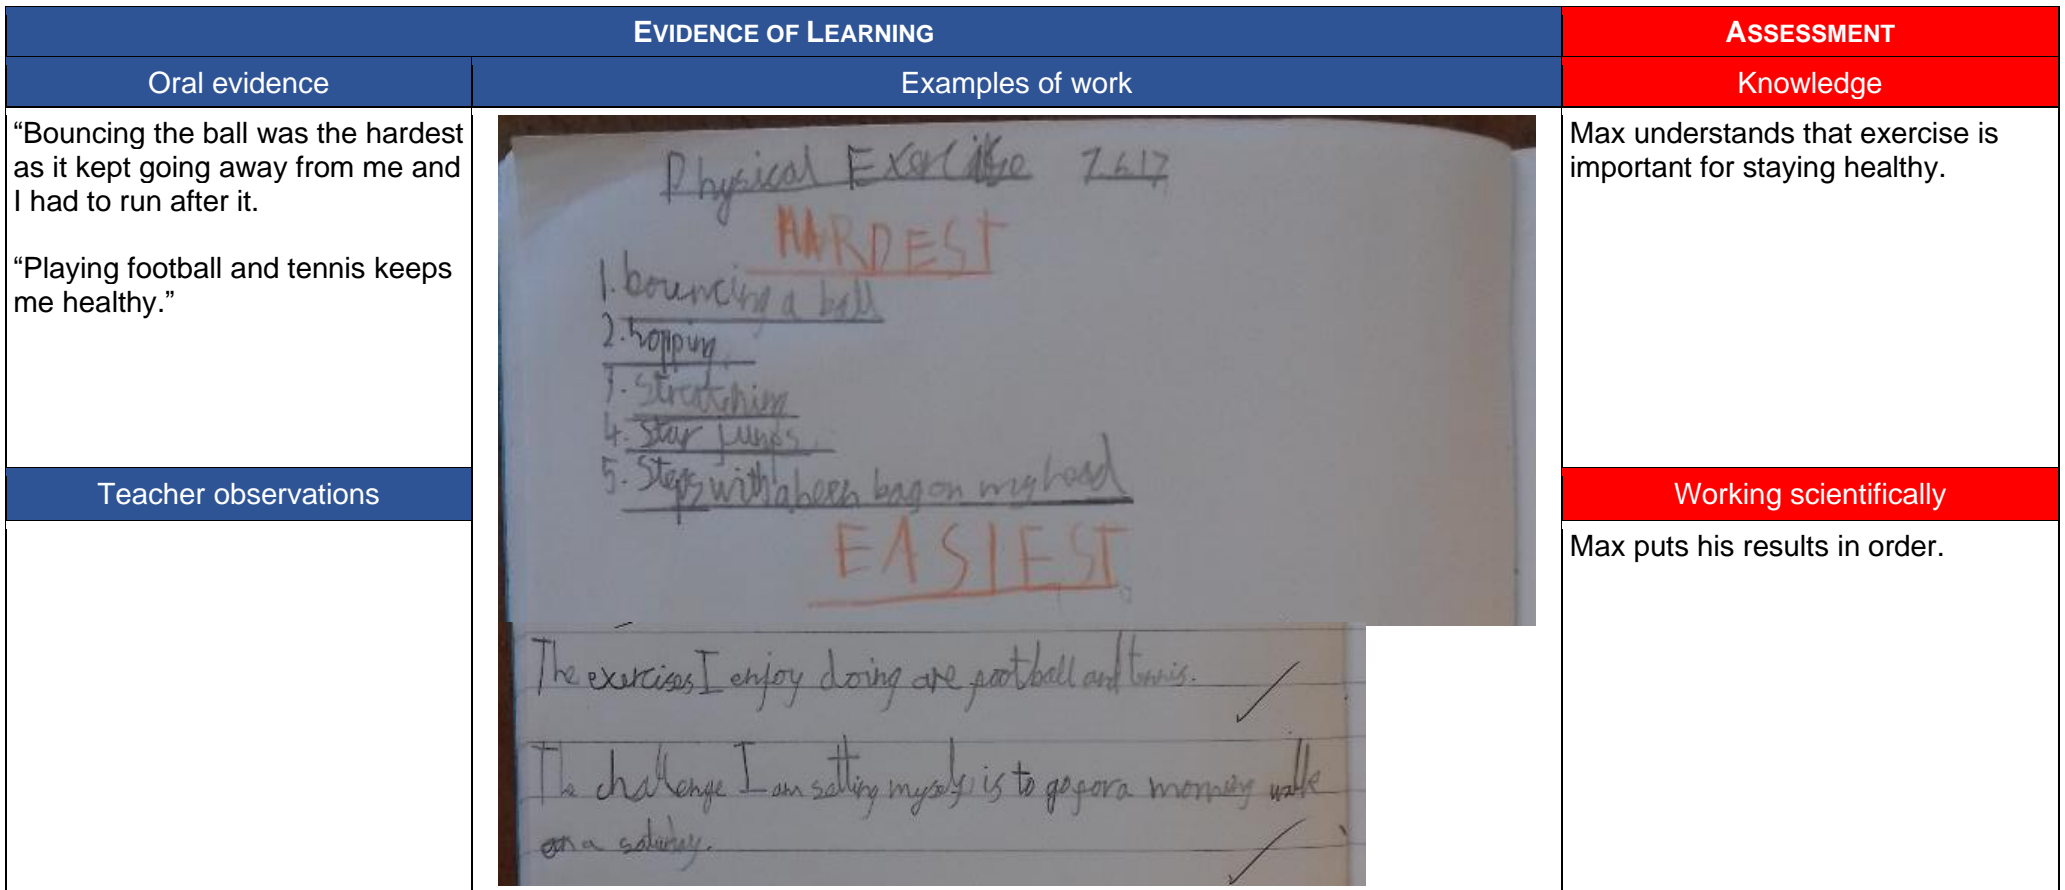 EVIDENCE OF LEARNING
ASSESSMENT
Oral evidence
Examples of work
Knowledge
“Bouncing the ball was the hardest
as it kept going away from me and
I had to run after it.
“Playing football and tennis keeps
me healthy.”
Teacher observations
Physical Exercise 7.6.17
HARDEST
1. bouncing a ball
2. hopping
3. Streatching
4. Star jumps.
5. Steps with a been bag on my head
EASIEST
The exercises I enjoy doing are football and tennis.
The challenge I am setting myself is to go for a morning walk
on a saturday.
Max understands that exercise is
important for staying healthy.
Working scientifically
Max puts his results in order.